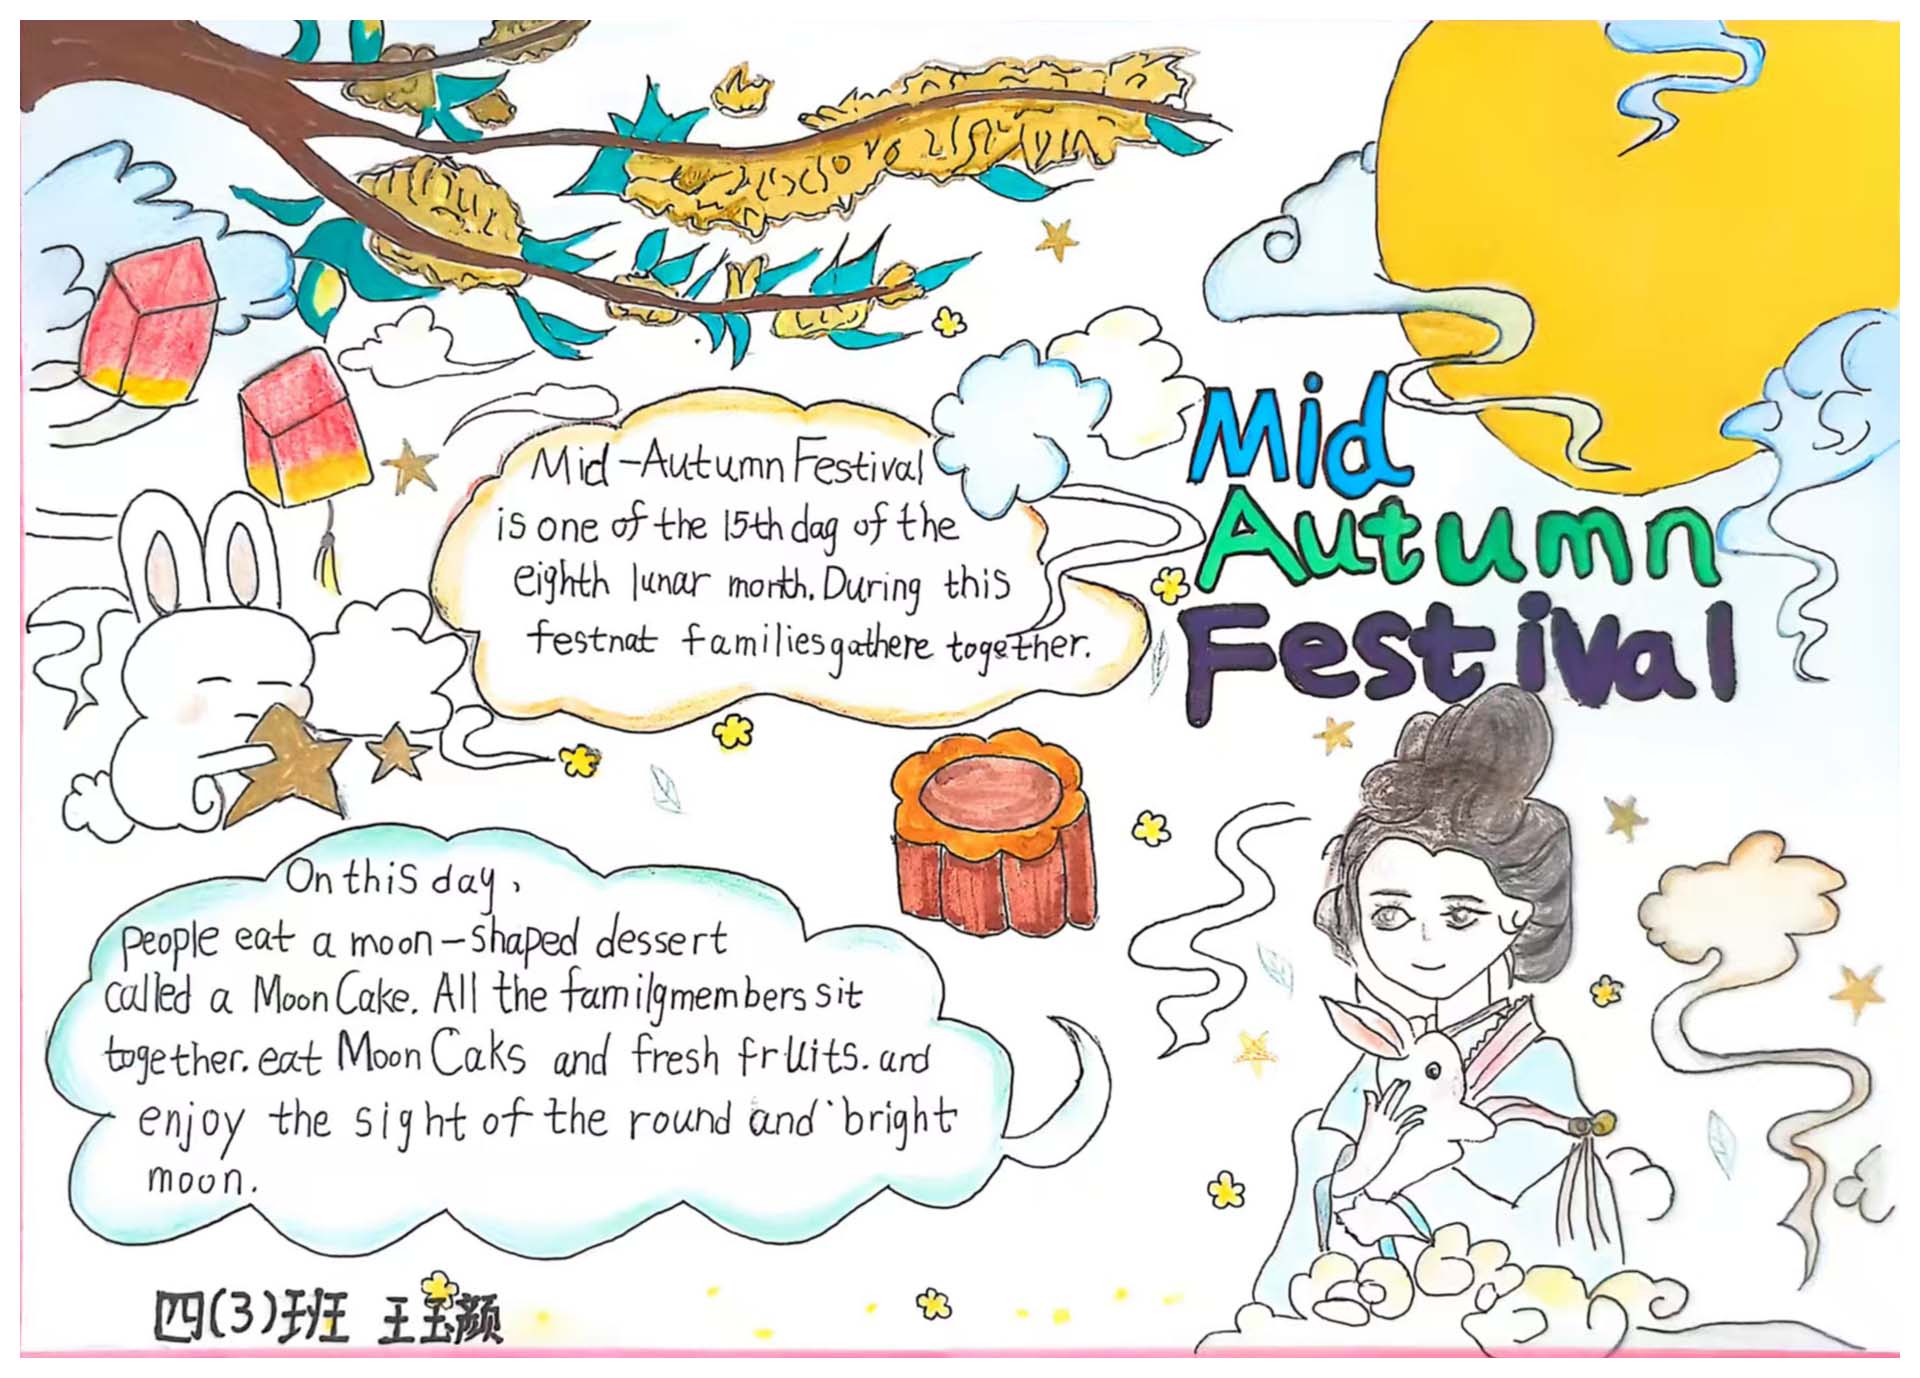 Mid
Autumn
Festival
Mid-Autumn Festival
is one of the 15th dag of the
eighth lunar month. During this
festnat families gathere together.
On this day,
People eat a moon-shaped dessert
called a Moon Cake. All the familg members sit
together. eat Moon Caks and fresh fruits. and
enjoy the sight of the round and bright
moon.
四(3)班 王玉颜